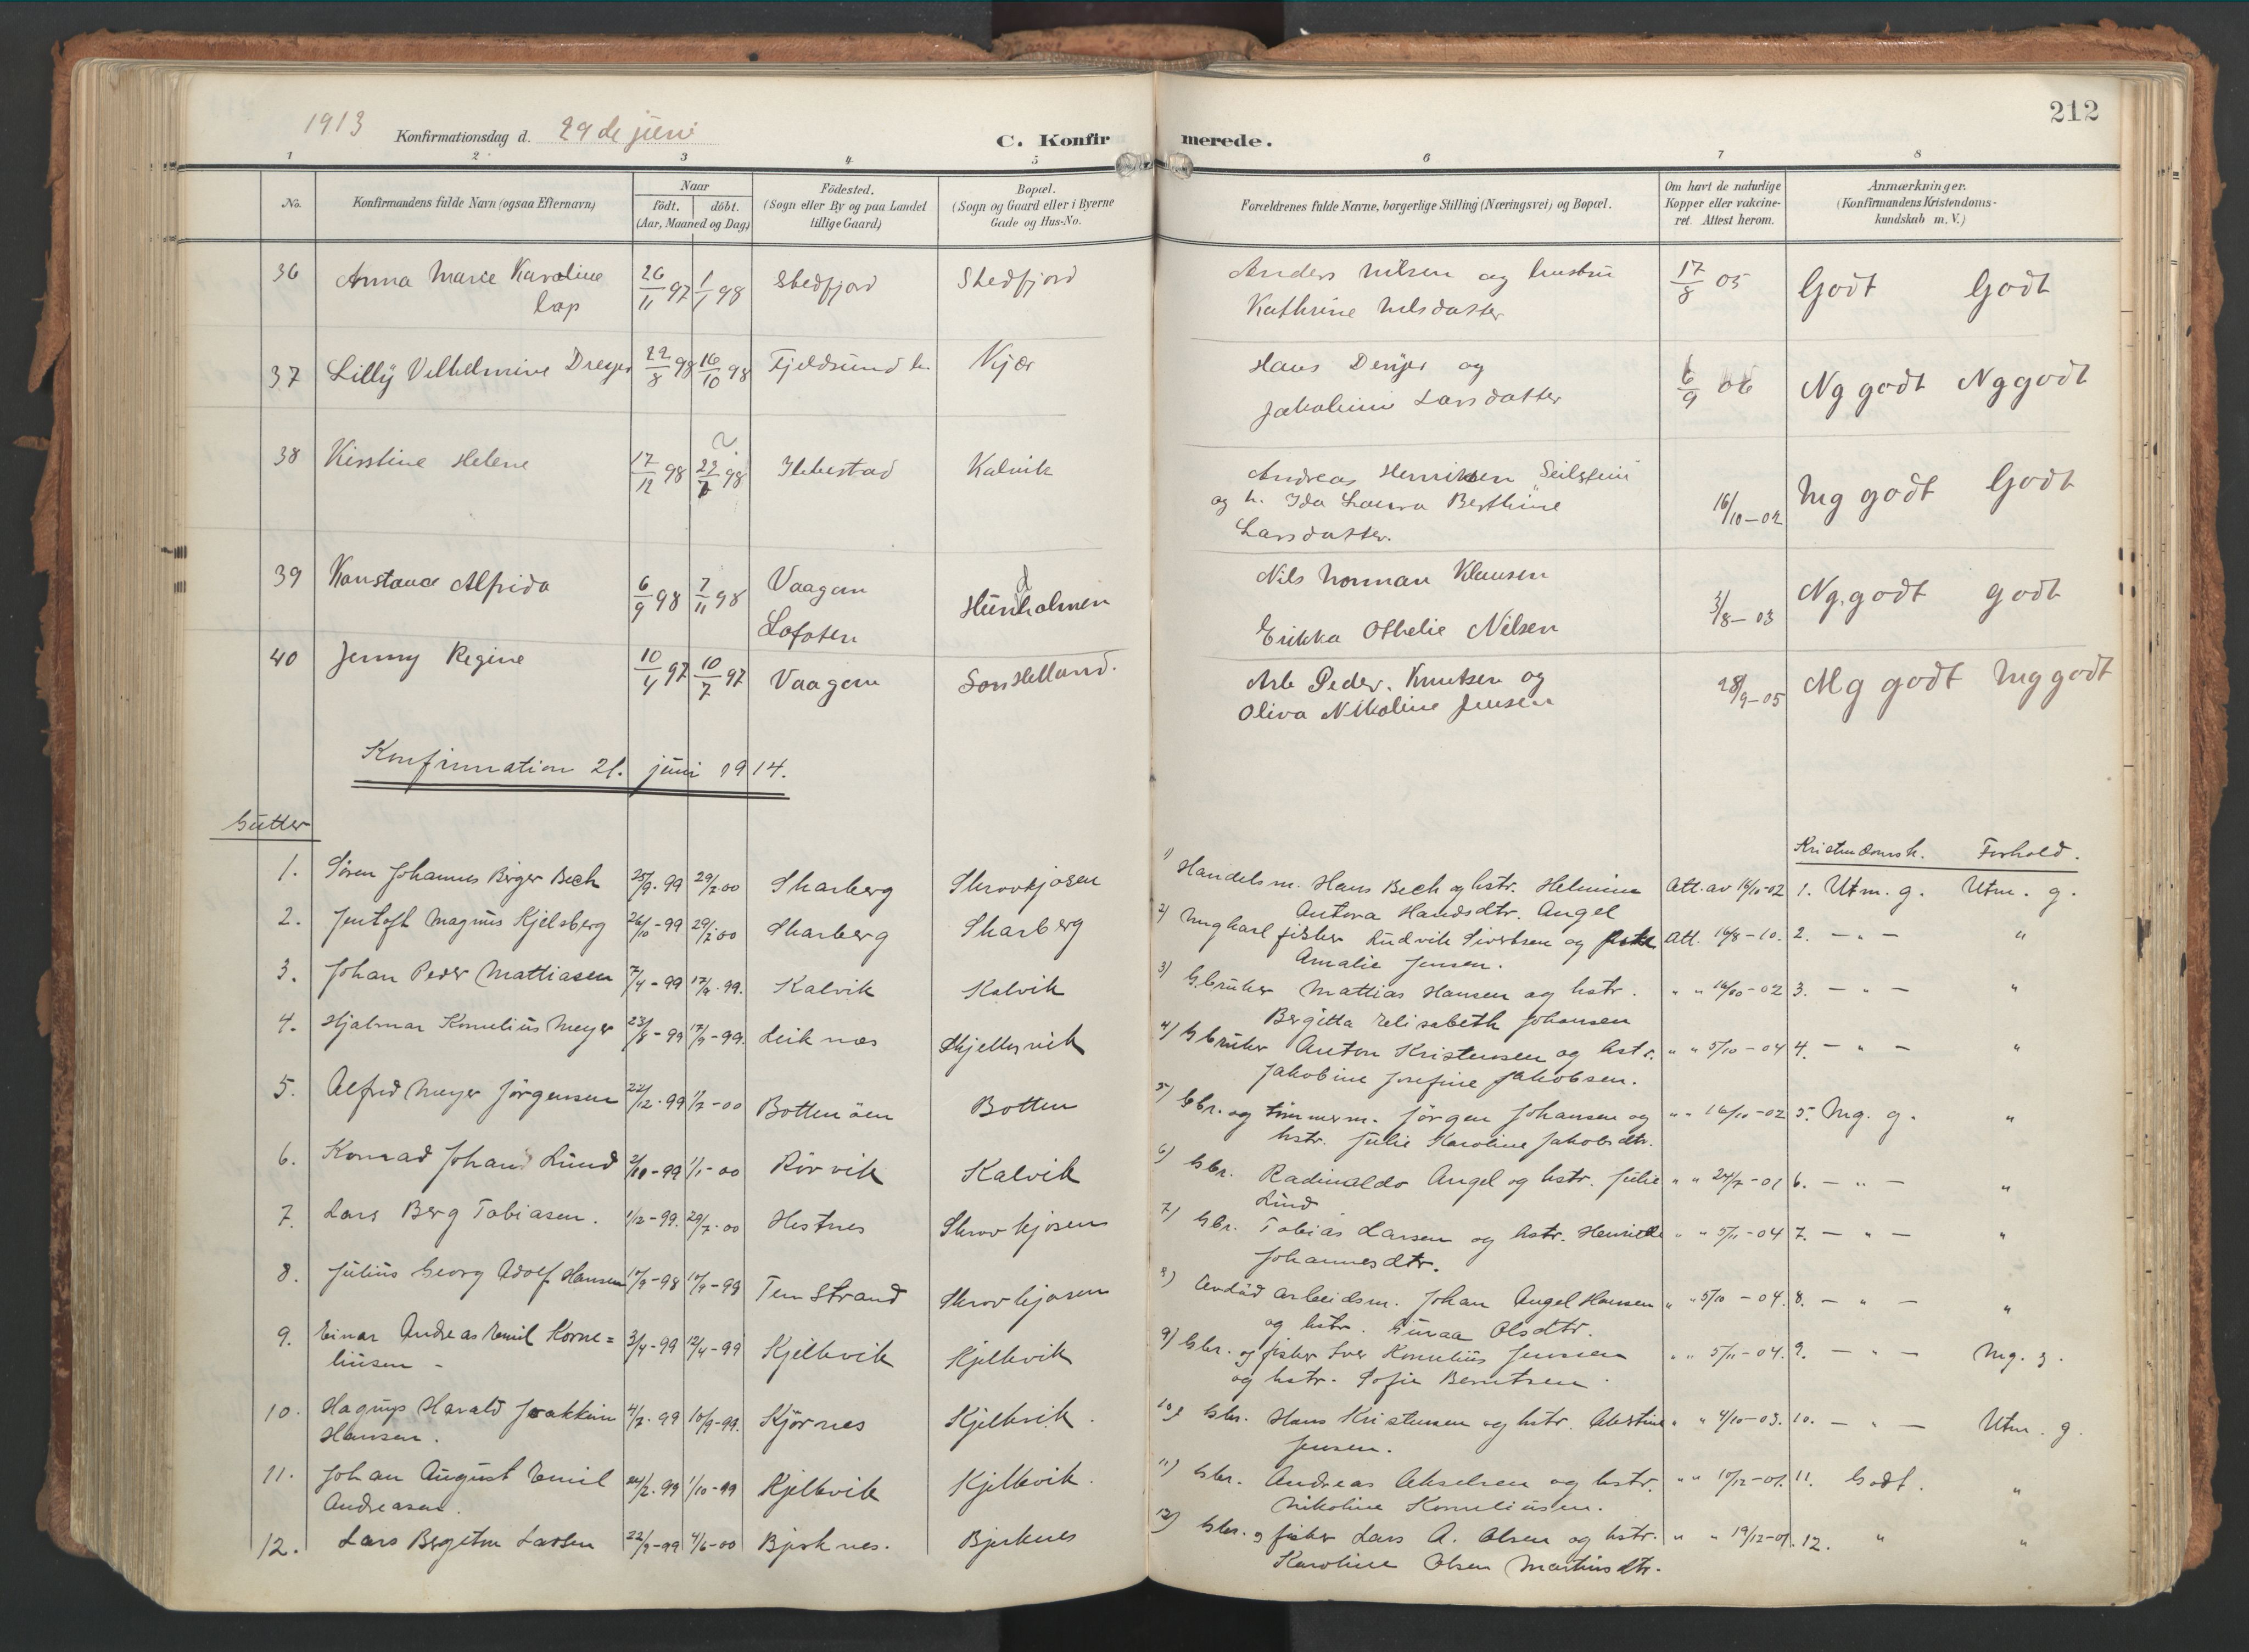 212
1913 Konfirmationsdag d. 29 de juni
C. Konfirmerede.
1 2 3 4 5 6 7 8
No. Konfirmandens fulde Navn (ogsaa Efternavn) Naar födt. döbt. (Aar, Maaned og Dag) Födested. (Sogn eller By og paa Landet tillige Gaard) Bopæl. (Sogn og Gaard eller i Byerne Gade og Hus-No. Forældrenes fulde Navne, borgerlige Stilling (Næringsvei) og Bopæl. Om havt de naturlige Kopper eller vakcineret. Attest herom. Anmærkninger. (Konfirmandens Kristendomskundskab m. V.)
36 Anna Marie Karoline 26/11 97 1/1 98 Skedfjord Skedfjord Anders Nilsen og hustru 17/8 05 Godt Godt
Lap Kathrine Nilsdatter
37 Lilly Vilhelmine Dreyer 22/8 98 16/10 98 Fjeldsund Kjær Hans Dreyer og 6/9 06 Ng godt Ng godt
Larsdatter
38 Kirstine Helene 17/12 98 98 Ibbestad Kalvik Andreas Henriksen Seilstein 16/10-02 Mg godt Godt
og h. Ida Laura Berthine
Larsdatter.
39 Konstance Alfrida 6/9 98 7/11 98 Vaagan Hundholmen Nils Norman Klausen 3/8-03 Ng. godt godt
Lofoten Erikka Othelie Nilsen
40 Jenny Regine 10/4 97 10/7 97 Vaagan Arb Peder. Knutsen og 28/9-05 Mg godt Mg godt
Oliva Nikoline Jensen
Konfirmation 21. juni 1914.
Gutter
Kristendomsk. Forhold.
1. Sören Johannes Birger Bech 25/9-99 29/7-00 Skarberg Skrovkjosen 1) Handelsm. Hans Bech og hstr. Helmine Att. av 16/10-02 1. Utm. g. Utm. g.
Antora Handsdtr. Angel
2. Jentoft Magnus Kjelsberg 26/10-99 29/7-00 Skarberg Skarberg 2) Ungkarl fisker Ludvik Sivertsen og Att. 16/8-10. 2. - " - "
Amalie Jensen.
3. Johan Peder Mattiasen 7/4-99 17/9-99. Kalvik Kalvik 3) G.bruker Mattias Hansen og hstr. " " 16/10-02 3. - " - "
Bergitta Elisabeth Johansen
4. Hjalmar Kornelius Meyer 23/8-99 17/9-99. Leiknes 4) G.bruker Anton Kristensen og hstr. " " 5/10-04 4. - " - "
Jakobine Josefine Jakobsen.
5. Alfred Meyer Jörgensen 22/12-99 1/7-00 Botten öen Botten 5) Gbr. og timmerm. Jörgen Johansen og " " 16/10-02 5. Mg. g. "
hstr. Julie Karoline Jakobsdtr.
6. Konrad Johan Lund 2/10-99 1/1-00 Rörvik Kalvik 6) Gbr. Radinaldo Angel og hstr. Julie " " 24/7-01 6. - " - "
Lund
7. Lars Berg Tobiasen. 1/12-99. 29/7-00 Hestnes Skrovkjosen 7) Gbr. Tobias Larsen og hstr. Henriette " " 5/11-04 7. - " - "
Johannesdtr.
8. Julius Georg Adolf Hansen 17/9-99 Skrovkjosen 8) Avdöd arbeidsm. Johan Angel Hansen " " 5/10-04. 8. - " - "
og hstr. Olsdtr.
9. Einar Andreas Emil Korne= 3/4-99 12/4-99 Kjelkvik Kjelkvik 9) Gbr. og fisker Kornelius Jensen " " 5/11-04. 9. - " - Mg. g.
liusen - og hstr. Sofie Berntsen
10. Harald Joakkim 4/7-99 10/9-99. Kjörnes Kjelkvik. 10) Gbr. Hans Kristensen og hstr. " " 4/10-03. 10. - " - Utm. g.
Hansen. Jensen.
11. Johan August Emil 24/2-99 1/10-99 Kjelkvik Kjelkvik. 11) Gbr. Andreas Akselsen og hstr. " " 10/12-01. 11. Godt. "
Andreasen. Nikoline Korneliusen.
12. Lars Bergiton Larsen 22/9-99 4/6-00 Bjerknes. Bjerknes 12) Gbr. og fisker Lars A. Olsen og hstr. " " 19/12-01. 12. " "
Karoline Olsen Martinsdtr.